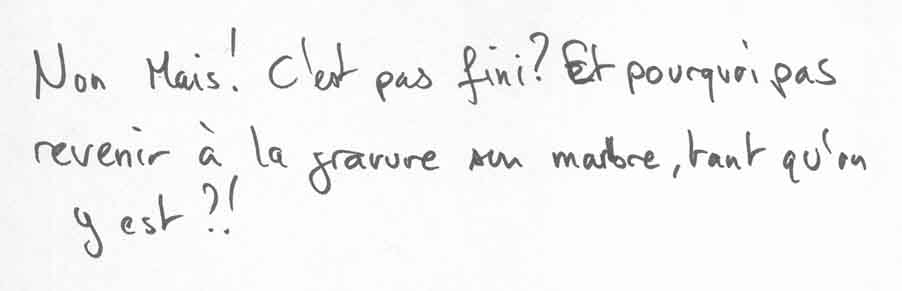 Non Mais! C'est pas fini? Et pourquoi pas
revenir à la gravure sur marbre, tant qu'on
y est?!